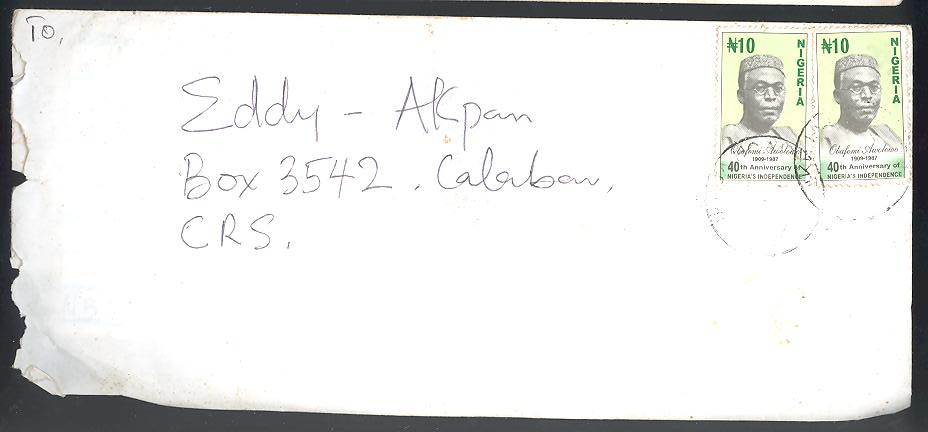 TO,
Eddy - Akpan
Box 3542, Calabar,
CRS.
₦10
NIGERIA
Obafemi Awolowo
1909-1987
40th Anniversary of
NIGERIA'S INDEPENDENCE
₦10
NIGERIA
Obafemi Awolowo
1909-1987
40th Anniversary of
NIGERIA'S INDEPENDENCE